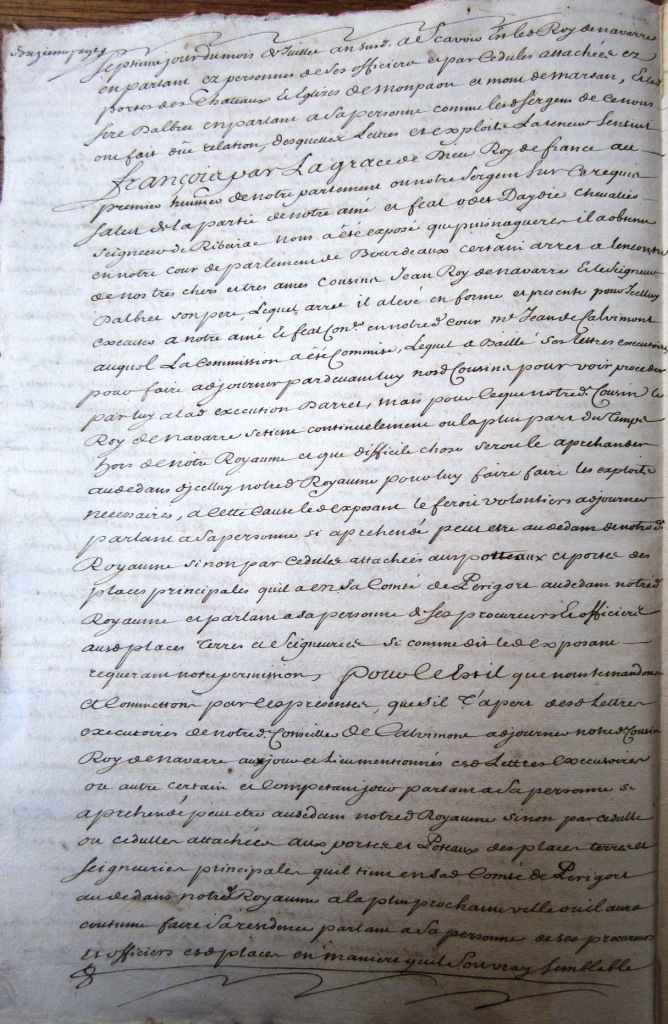 septieme jour du mois de Juillet an susd. a Scavoir led. Roy de navarre
en parlant ez personnes de ses officiers et par Cedules attachées ez
portes des Chateaux Et Eglizes de monpaon et mont de marsan, Et led.
Sere Dalbret en parlant a sa personne comme led. Sergens de Ce nous
ont fait due relation, desquelles Lettres et exploits La teneur Sensuit
françois par La grace de Dieu Roy de france au
premier huissier de notre parlement ou notre Sergent Sur Ce requis
salut de la partie de notre amé et feal odet Daydie chevalier
Seigneur de Ribairac nous a été exposé que puis naguieres il a obtenu
en notre Cour de parlement de Bourdeaux certain arret a lencontre
de nos tres chers et tres ames cousins Jean Roy de navarre Et le Seigneur
Dalbret son pere Lequel arret il a levé en forme et presente pour Icelluy
executer a notre amé Et feal Conr. en notred. Cour me. Jean de Calvimont
auquel La Commission a été Commise, Lequel a Baillé Ses lettres executoires
pour faire adjourner pardevant luy nosd. Cousins pour voir proceder
par luy a lad. execution Darret, mais pour Ce que notred. Cousin le
Roy de navarre se tient continuellement ou la plus part du Temps
hors de notre Royaume et que difficile chose seroit le aprehander
au dedans dicelluy notred. Royaume pour luy faire faire les exploits
necessaires, a Cette Cause led. exposant le feroit volontiers adjourner
parlant a Sa personne si aprehendé peut etre au dedans de notred.
Royaume si non par cedules attachées aux potteaux et portes des
places principales quil a en Sa Comté de Perigort au dedam notred.
Royaume et parlant a sa personne de ses procureurs Et officiers
ausd. places Terres et Seigneuries Si comme dit led. exposant
requerant notre permission, pour Ce Est il que nous te mandons
et Commettons par Ces presentes, que S'il T'apert desd. Lettres
executoires de notred. Conseiller de Calvimont adjourner notred. Cousin
Roy de navarre aux jour et Lieu mentionnés esd. Lettres executoires
ou autre certain et Competant jour parlant a Sa personne si
aprehendé peut etre au dedam notred. Royaume si non par cedulle
ou cedulles attachées aux portes et Poteaux des places terres et
seigneuries principales quil tient en sad. Comté de Perigort
au dedans notred. Royaume a la plus prochaine ville ou il aura
coutume faire Sa residence parlant a Sa personne de ses procureurs
Et officiers esd. places en maniere quil Souvray semblable